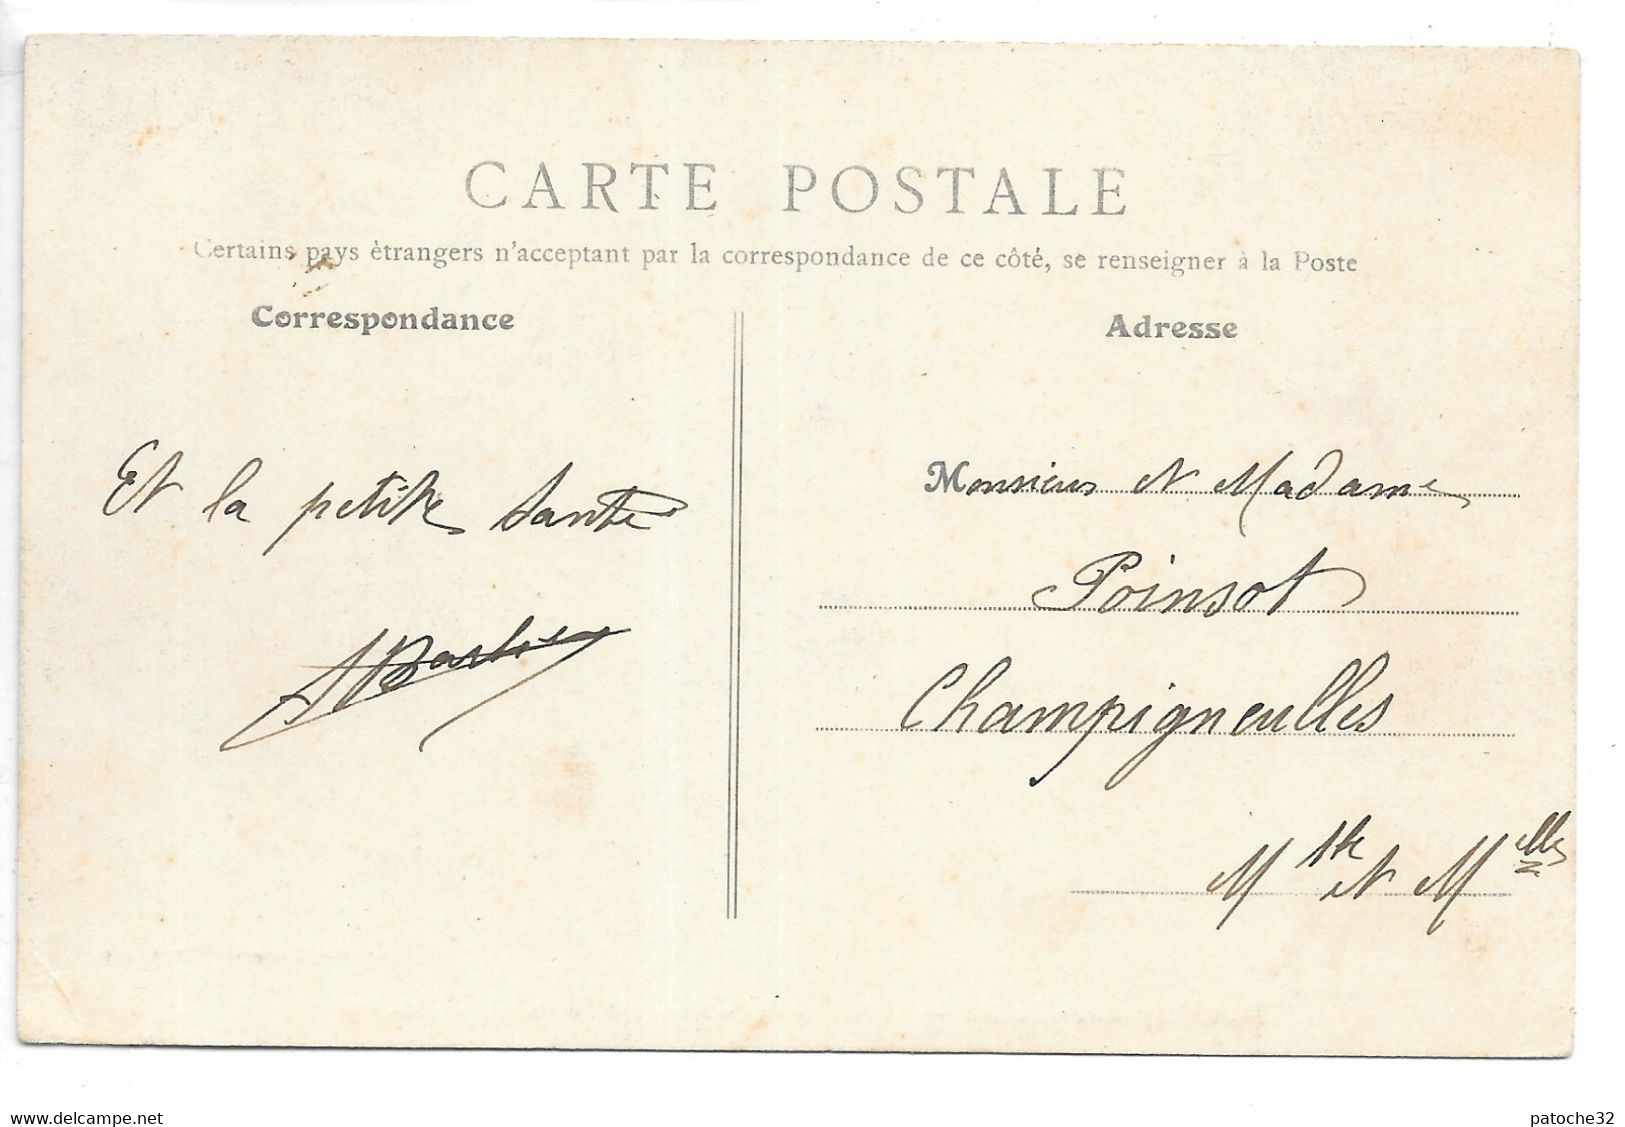 CARTE POSTALE
Certains pays étrangers n'acceptant par la correspondance de ce côté, se renseigner à la Poste
Correspondance
Adresse
Et la petite santé
Monsieur et Madame
Poinsot
Champigneulles
Mthe et Melles
www.delcampe.net
patoche32